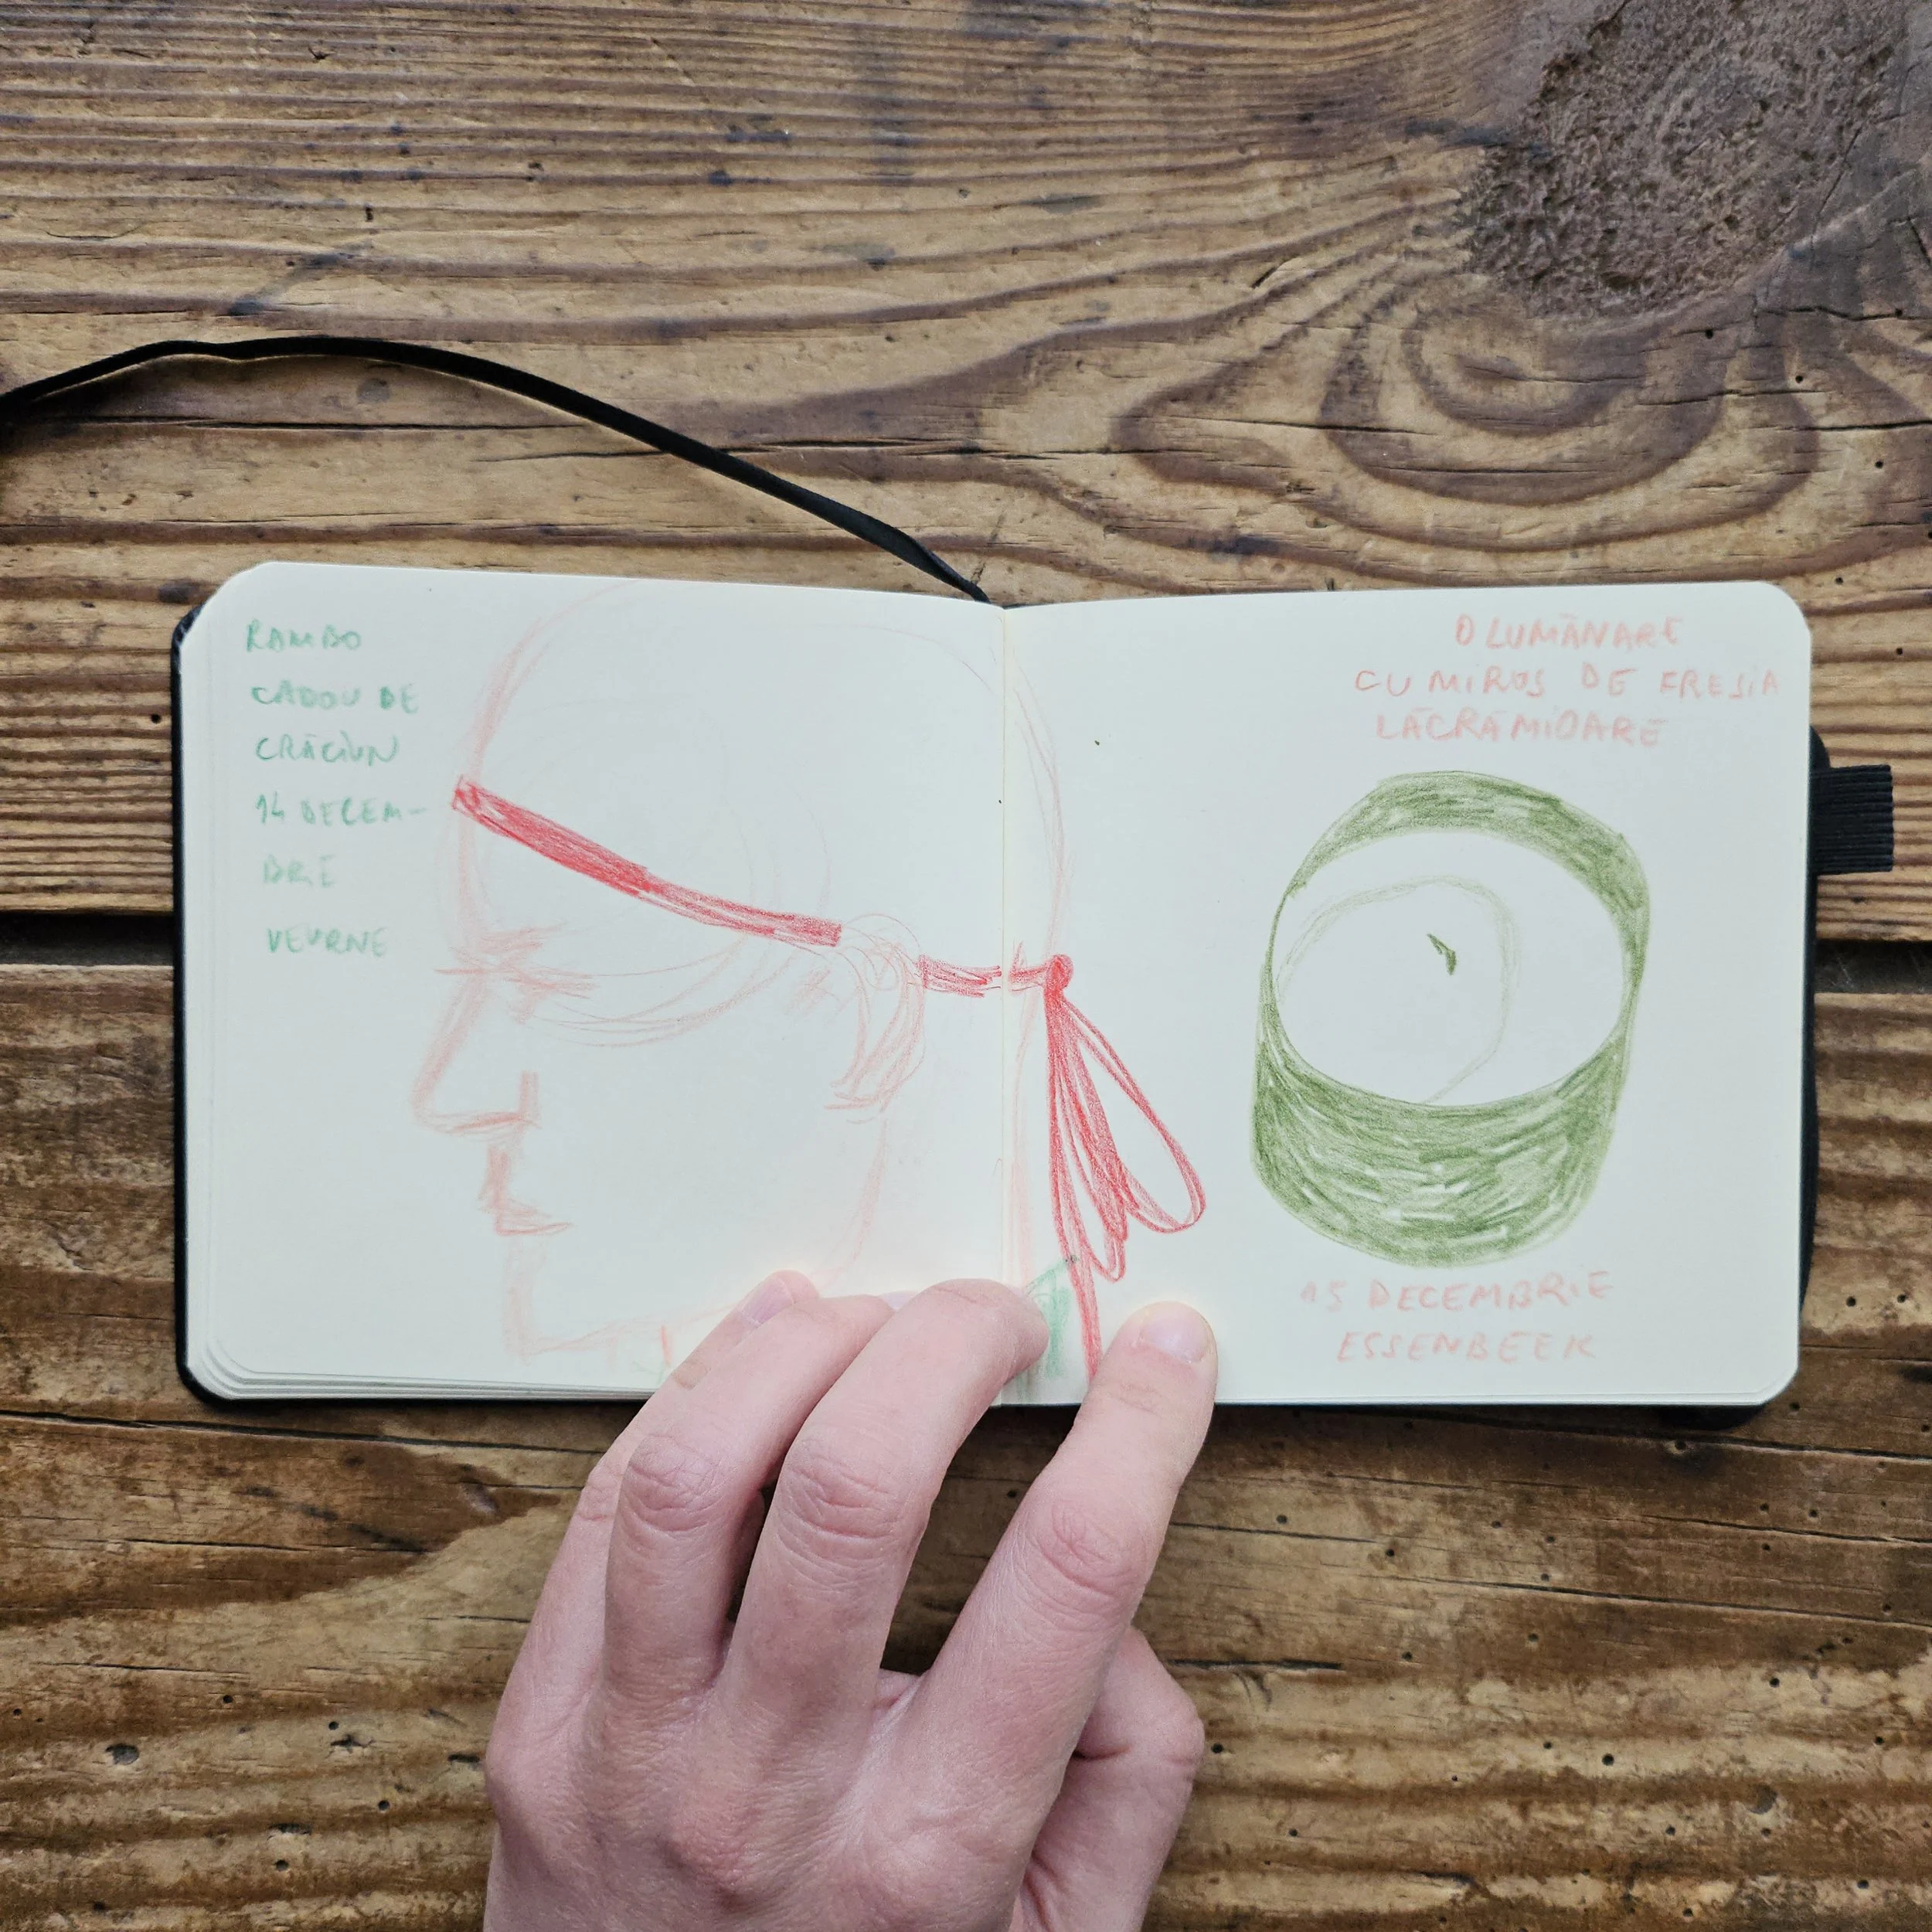 RAMBO
CADOU DE
CRĂCIUN
14 DECEM-
BRIE
VEURNE
O LUMÂNARE
CU MIROS DE FRESIA
LĂCRĂMIOARE
15 DECEMBRIE
ESSENBEEK